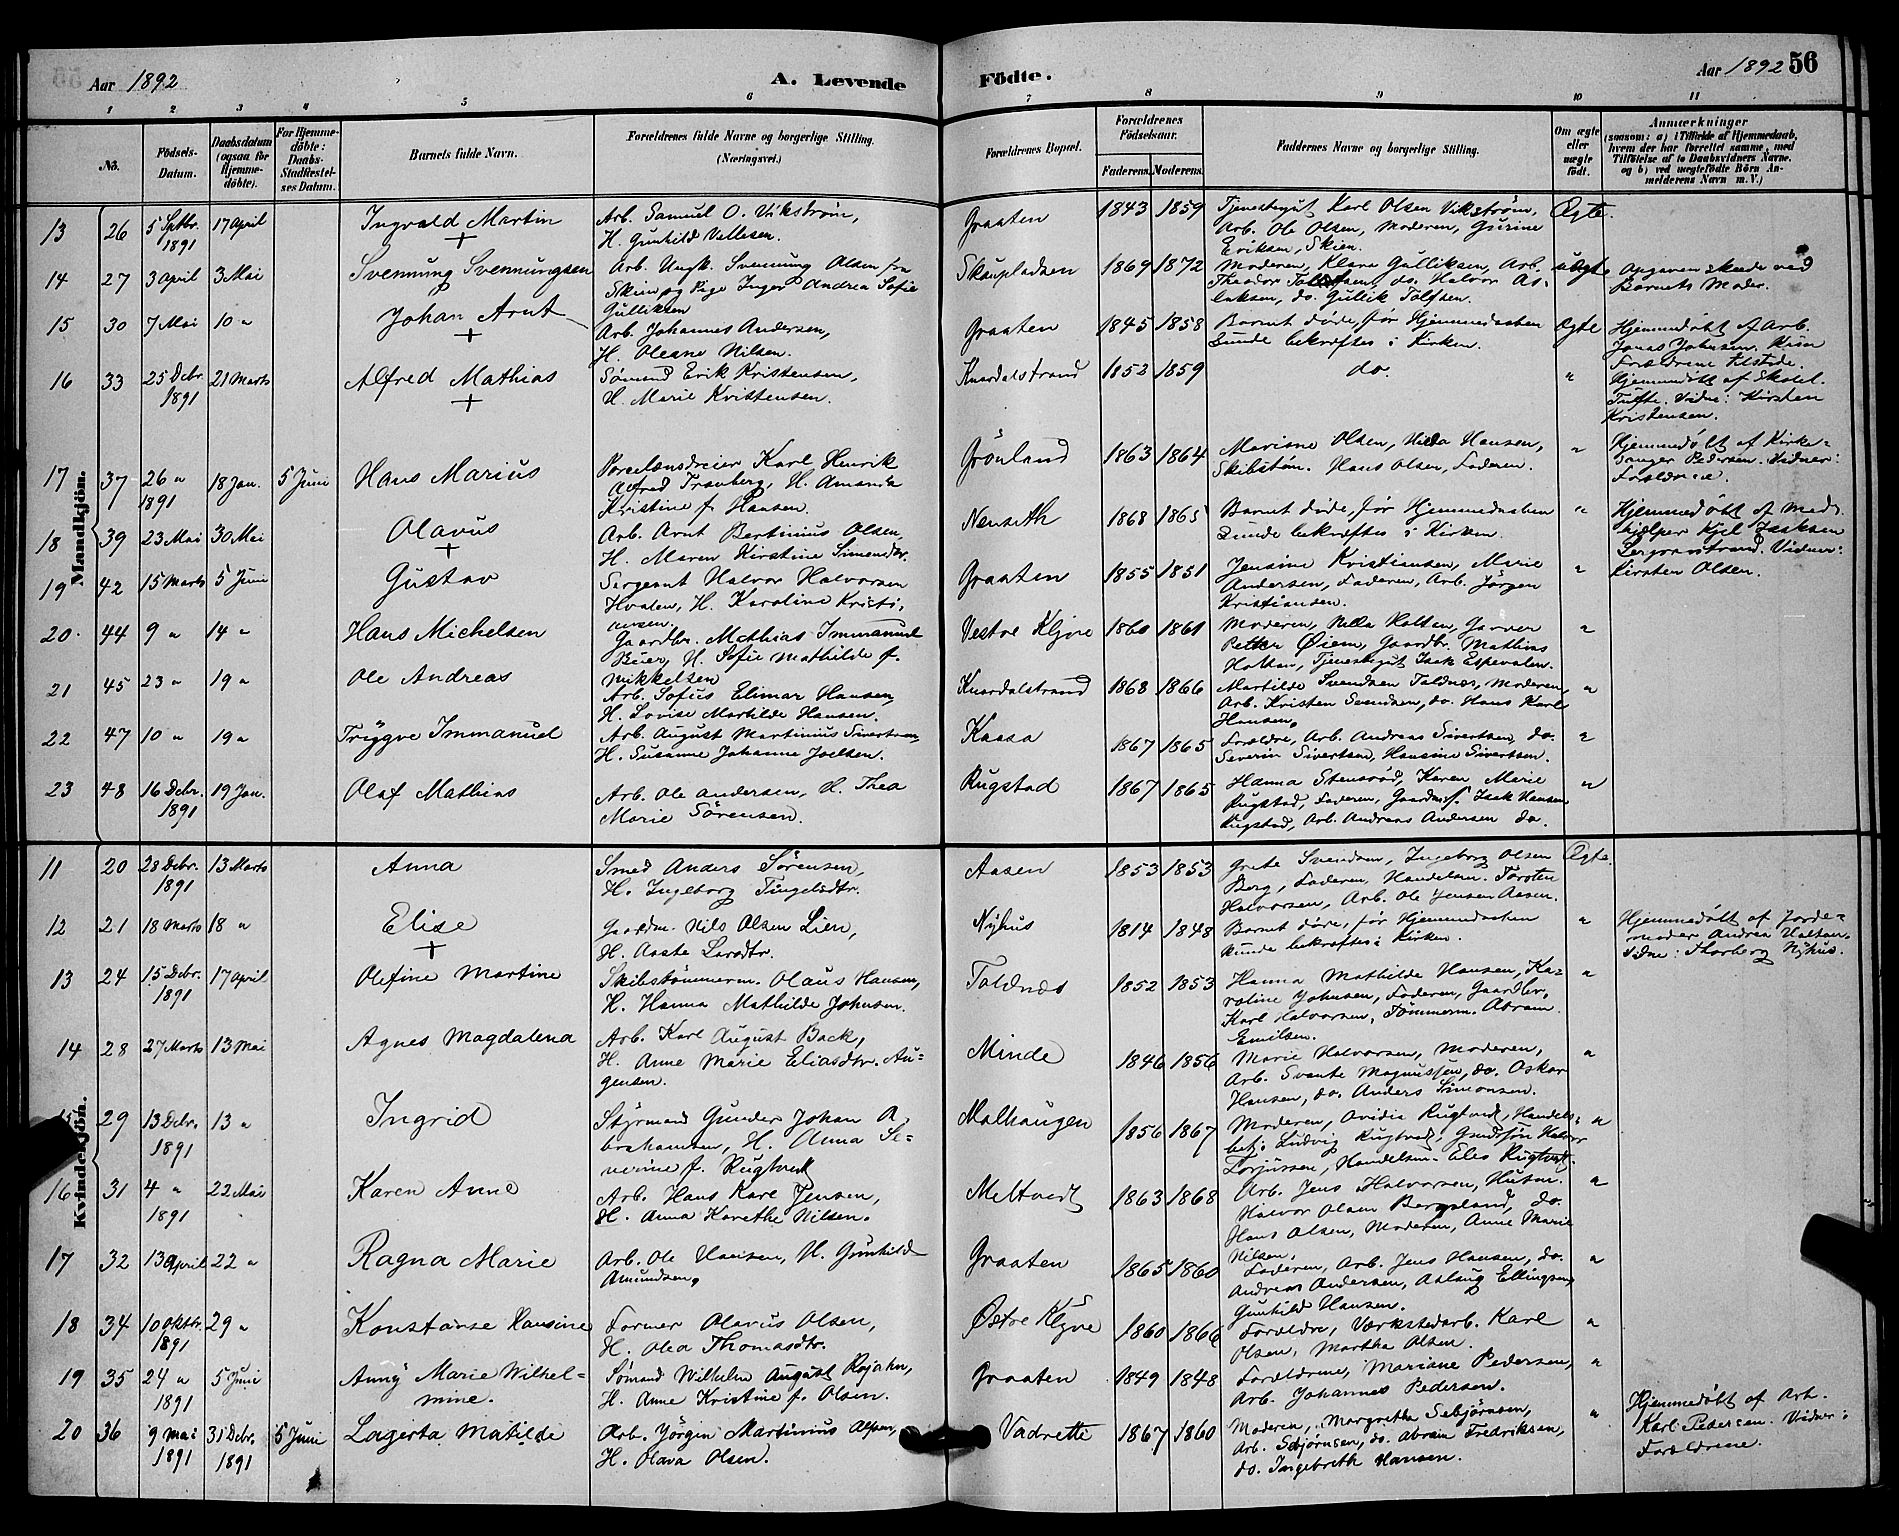 Aar 1892
A. Levende
Födte.
Aar 1892 56
1 2 3 4 5 6 7 8 9 10 11
No.
Födsels-Datum.
Daabsdatum (ogsaa for Hjemme-döbte).
For Hjemme-döbte: Daabs-Stadfæstel-ses Datum.
Barnets fulde Navn.
Forældrenes fulde Navne og borgerlige Stilling. (Næringsvei.)
Forældrenes Bopæl.
Forældrenes Födselsaar.
Faderens. Moderens.
Faddernes Navne og borgerlige Stilling.
Om ægte eller uægte födt.
Anmærkninger
(saasom: a) i Tilfælde af Hjemmedaab,
hvem der har forrettet samme, med
Tilföielse af to Daabsvidners Navne,
og b) ved uægtefödte Börn An-
melderens Navn m. V.)
Mandkjön.
13 26 5 Septbr. 1891 17 April Ingvald Martin +
Arb. Samuel O. Vikström,
H. Gunhild Vellesen.
Graaten 1843 1859
Tjenestegut Karl Olsen Vikström,
Arb. Ole Olsen, Moderen, Gurine
Eriksen, Skien.
Ægte.
14 27 3 April 3 Mai Svennung Svennungsen
Arb. Ungk. Svennung Olsen fra
Skien og Pige Inger Andrea Sofie
Gulliksen
Skaupladsen 1869 1872
Moderen, Klara Gulliksen, Arb.
Theodor Tolfsen, do. Halvor As-
laksen, do. Gullik Tolfsen.
uægte
Opgaven skede ved
Barnets Moder.
15 30 7 Mai 10 " Johan Arnt +
Arb. Johannes Andersen,
H. Oleane Nilsen.
Graaten 1845 1858
Barnet døde, før Hjemmedaaben
kunde bekræftes i Kirken.
Ægte
Hjemmedøbt af Arb.
Jonas Johnsen. Kun
Forældrene tilstede.
16 33 25 Debr. 1891 21 Marts Alfred Mathias +
Sømand Erik Kristensen,
H. Marie Kristensen.
Knardalstrand 1852 1859
do.
"
Hjemmedøbt af Skolel.
Tufte. Vidne: Kirsten
Kristensen.
17 37 26 " 1891 18 Jan. 5 Juni Hans Marius
Porcelænsdreier Karl Henrik
Alfred Tranberg, H. Amanda
Kristine f. Hansen.
Grönland 1863 1864
Mariane Olsen, Hilda Hansen,
Skibstøm. Hans Olsen, Faderen.
"
Hjemmedøbt af Kirke-
sanger Pedersen. Vidner:
Forældrene
18 39 23 Mai 30 Mai Olavus +
Arb. Arnt Bertinius Olsen,
H. Maren Kirstine Simensdtr.
Nenseth 1868 1865
Barnet døde, før Hjemmedaaben
kunde bekræftes i Kirken.
"
Hjemmedøbt af Med-
hjælper Kjel Isaksen
Bergvanstrand. Vidner:
Kirsten Olsen.
19 42 15 Marts 5 Juni Gustav
Sergeant Halvor Halvorsen
Hvalen, H. Karoline Kristi-
ansen.
Graaten 1855 1851
Jensine Kristiansen, Marie
Andersen, Faderen, Arb. Jörgen
Kristiansen.
"
20. 44 9 " 14 " Hans Michelsen
Gaardbr. Mathias Immanuel
Buer, H. Sofie Mathilde f.
Mikkelsen
Vestre Klyve 1860 1861
Moderen, Nella Holten, Garver
Petter Øiem, Gaardbr. Mathias
Holten, Tjenestegut Isak Espevalen.
"
21 45 23 " 19 " Ole Andreas
Arb. Sofus Elimar Hansen,
H. Lovise Martilde Hansen.
Knardalstrand 1868 1866
Martilde Svendsen Foldnæs, Moderen,
Arb. Kristen Svendsen, do. Hans Karl
Hansen.
"
22 47 10 " 19 " Tryggve Immanuel
Arb. August Martinius Sivertsen,
H. Susanne Johanne Joelsen.
Kaasa 1867 1865
Forældre, Arb. Andreas Sivertsen, do.
Severin Sivertsen, Hansine Sivertsen.
"
23 48 16 Debr. 1891 19 Jan. Olaf Mathias
Arb. Ole Andersen, H. Thea
Marie Sörensen.
Rugstad 1867 1865
Hanna Stensrød, Karen Marie
Rugstad, Faderen, Gaardmf. Isak Hansen
Rugstad, Arb. Andreas Andersen do.
"
Kvindekjön.
11 20 28 Debr. 1891 13 Marts Anna
Smed Anders Sörensen,
H. Ingeborg Tingelsdtr.
Aasen 1853 1853
Grete Svendsen, Ingeborg Olsen
Berg, Faderen, Handelsm. Torsten
Halvorsen, Arb. Ole Jensen Aasen.
Ægte.
12 21 18 Marts 18 " Elise +
Gaardm. Nils Olsen Lien,
H. Aaste Larsdtr.
Nyhus 1814 1848
Barnet døde, før Hjemmedaaben
kunde bekræftes i Kirken.
"
Hjemmedøbt af Jorde-
moder Andrea Holtan.
Vidne: Thorborg Nyhus.
13 24 15 Debr. 1891 17 April Olefine Martine
Skibstömmerm. Olaus Hansen,
H. Hanna Mathilde Johnsen.
Foldnæs 1852 1853
Hanna Mathilde Hansen, Ka-
roline Johnsen, Faderen, Gaardbr.
Karl Halvorsen, Tömmerm. Abram
Emilsen.
"
14 28 27 Marts 13 Mai Agnes Magdalena
Arb. Karl August Back,
H. Anne Marie Eliasdtr. Au-
gensen.
Minde 1846 1856
Marie Halvorsen, Moderen,
Arb. Svante Magnussen, do. Oskar
Hansen, do. Anders Simonsen.
"
29 13 Debr. 1891 13 " Ingrid
Styrmand Gunder Johan A-
brahamsen, H. Anna Se-
verine f. Rugtvedt
Malhaugen 1856 1867
Moderen, Ovidia Rugtvedt, Handels-
betj. Ludvig Rugtvedt, Halvor
Torjussen, Handelsm. Elias Rugtvedt.
"
16 31 4 " 1891 22 Mai Karen Anne
Arb. Hans Karl Jensen,
H. Anna Karethe Nilsen.
Meltvedt 1863 1868
Arb. Jens Halvorsen, Husm.
Halvor Olsen Bergsland, do.
Hans Olsen, Moderen, Anne Marie
Nilsen.
"
17 32 13 April 22 " Ragna Marie
Arb. Ole Hansen, H. Gunhild
Amundsen.
Graaten 1865 1860
Faderen, Arb. Jens Hansen, do.
Andreas Andersen, Aslaug Ellingsen,
Gunhild Hansen.
"
18 34 10 Oktbr. 1891 29 " Konstanse Hansine
Former Olavus Olsen,
H. Olea Thomasdtr.
Østre Klyve 1860 1866
Forældre, Værkstedarb. Karl
Olsen, Martha Olsen.
"
19 35 24 " 1891 5 Juni Anny Marie Wilhel-
mine.
Sømand Wilhelm August Rojahn,
H. Anne Kristine f. Olsen.
Graaten 1849 1848
Forældrene, Mariane Pedersen,
Arb. Johannes Pedersen.
"
20 36 9 Mai 1891 31 Debr. 1891 5 Juni Lagerta Matilde
Arb. Jörgen Martinius Olsen,
H. Olava Olsen.
Vadrette 1867 1860
Moderen, Margrethe Sebjørnsen,
Arb. Sebjørnsen, do. Abram Fredriksen,
do. Ingebreth Hansen.
"
Hjemmedøbt af Arb.
Karl Pedersen. Vidner:
Forældrene.